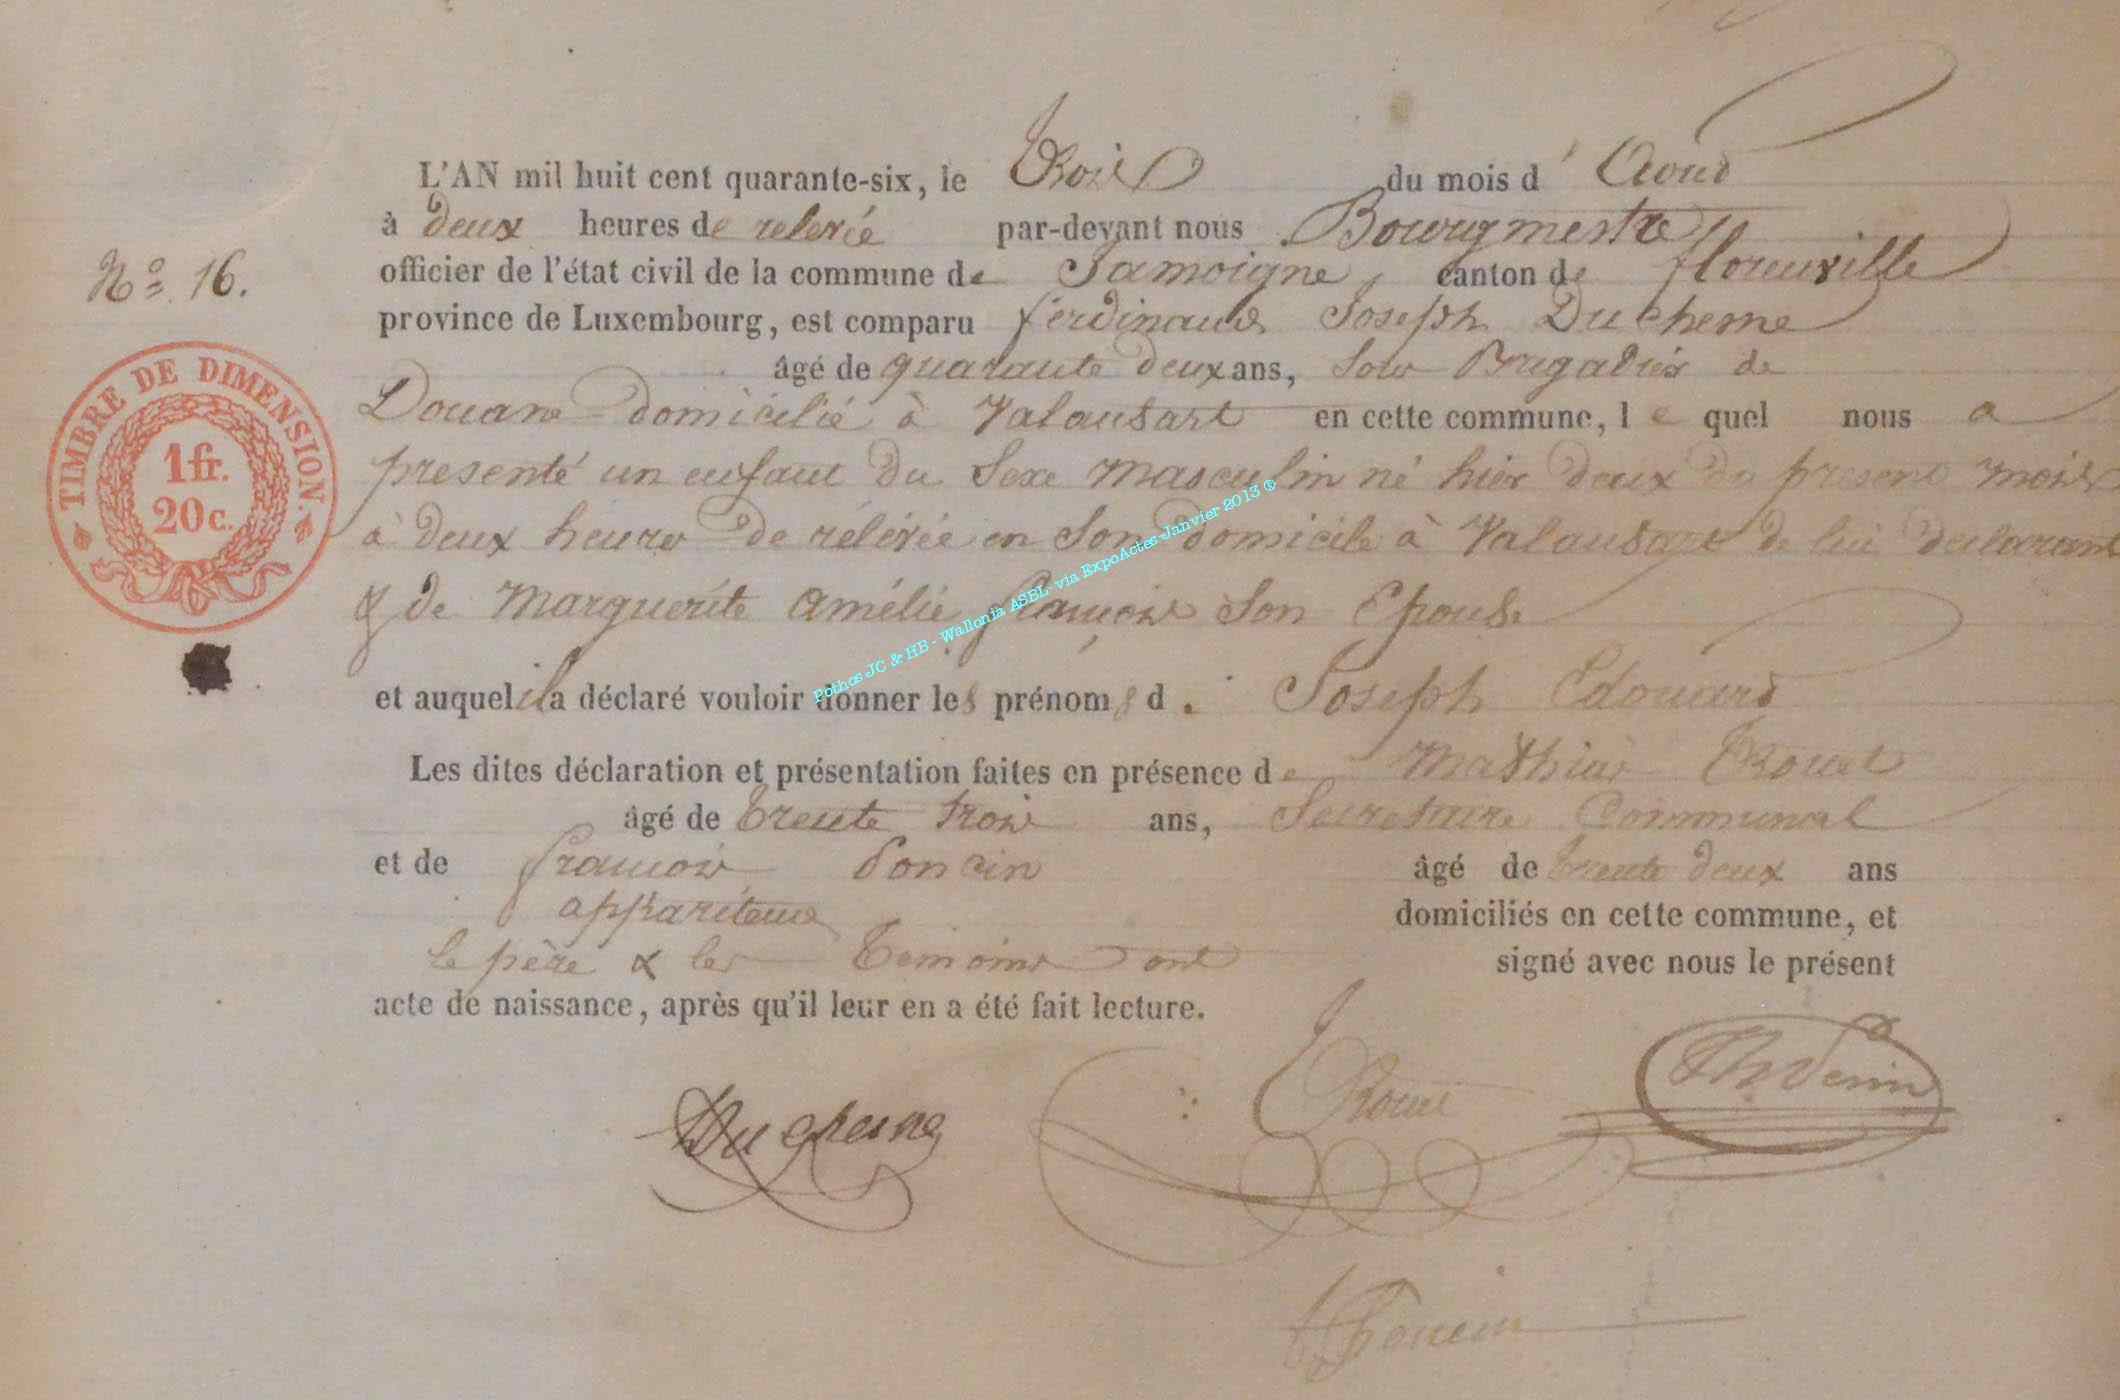 L'AN mil huit cent quarante-six, le Trois du mois d'Aout
à deux heures de relevée par-devant nous Bourgmestre
N° 16.
officier de l'état civil de la commune de Jamoigne, canton de florenville
province de Luxembourg, est comparu ferdinand Joseph Duchesne
âgé de quarante deux ans, Sous Brigadier de
Douane domicilié à Valansart en cette commune, lequel nous a
presenté un enfant du Sexe masculin né hier deux du present mois
à deux heures de rélévée en Son domicile à Valansart de lui declarant
& de Marguerite Amélie françois Son Epouse
et auquel il a déclaré vouloir donner les prénoms d. Joseph Edouard
Les dites déclaration et présentation faites en présence de Mathias Trouet
âgé de trente trois ans, Secretaire Communal
et de françois Poncin âgé de trente deux ans
appariteur domiciliés en cette commune, et
le père & les Temoins ont signé avec nous le présent
acte de naissance, après qu'il leur en a été fait lecture.
Duchesne
Poncin
TIMBRE DE DIMENSION.
1 fr.
20 c.
Pothos JC & HB - Wallonia ASBL- via ExpoActes-Janvier 2013 ®